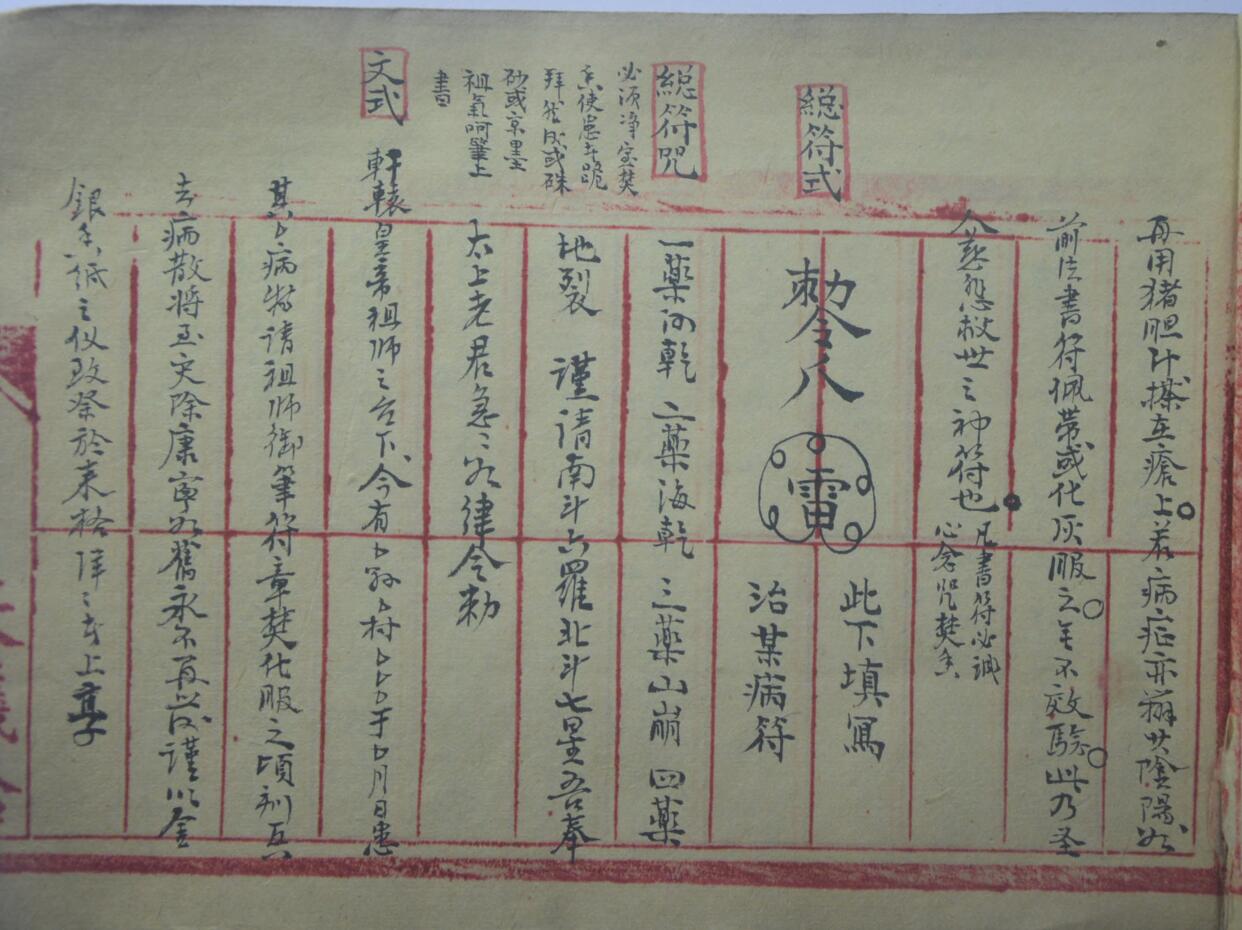 再用猪胆汁搽在瘡上若病症亦辨其陰陽如
前法書符佩带或化灰服之無不效驗此乃圣
人慈悲救世之神符也
凡書符必誠
心念咒焚香
総符式
勅令
雷
此下填寫
治某病符
総符咒
必須净室焚
香使患者跪
拜然後或硃
砂或京墨
祖氣呵筆上
書
一藥河乾 二藥海乾 三藥山崩 四藥
地裂 謹請南斗六羅北斗七星吾奉
太上老君急〻如律令勅
文式
軒轅皇帝祖師之台下今有
村
于
月日患
其
病特請祖師御筆符章焚化服之頃刻
去病散將
灾除康寧如舊永不再發謹以金
銀香紙之仪致祭於
格洋〻
上享